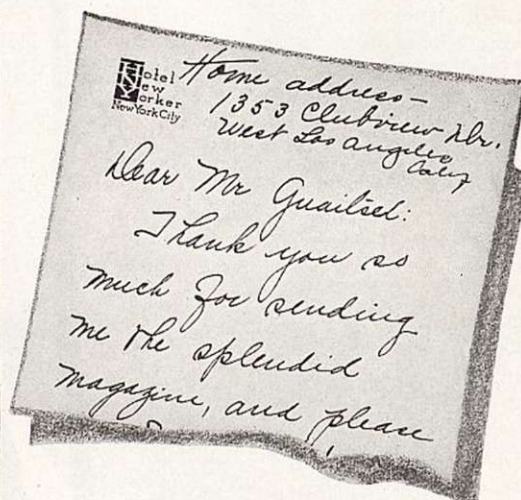 Hotel
New
Yorker
New York City
Home address—
1353 Clubview Dr.
West Los Angeles
Calif
Dear Mr
Thank you so
much for sending
me the splendid
magazine, and please